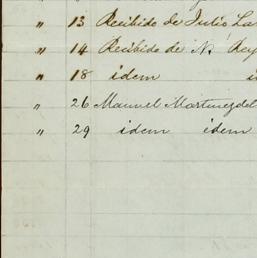 " 13 Recibido de Julio La
" 14 Recibido de N. Rey
" 18 idem i
" 26 Manuel Martinez del
" 29 idem idem